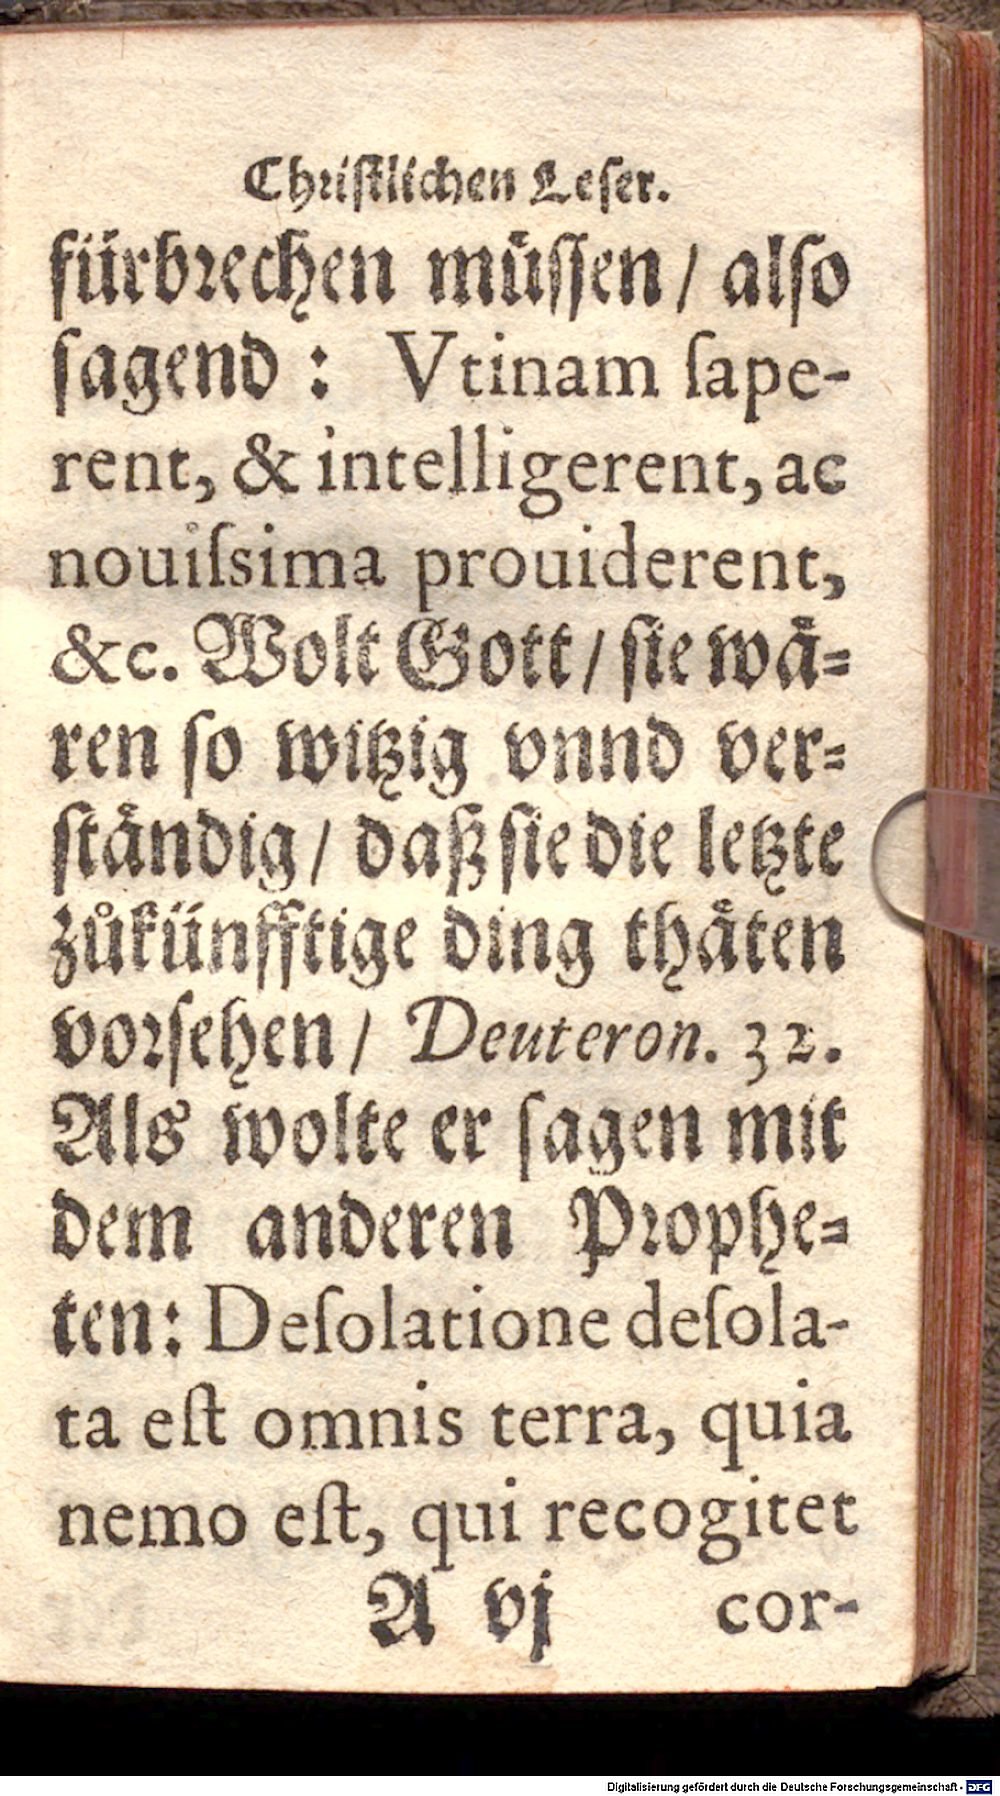 Chriſtlichen Leſer.
fürbrechen müſſen / alſo
ſagend : Vtinam ſape-
rent, & intelligerent, ac
nouiſsima prouiderent,
&c. Wolt Gott / ſie waͤ=
ren ſo witzig vnnd ver=
ſtaͤndig / daß ſie die letzte
zuͤkünfftige ding thaͤten
vorſehen / Deuteron. 32.
Als wolte er ſagen mit
dem anderen Prophe=
ten: Deſolatione deſola-
ta eſt omnis terra, quia
nemo eſt, qui recogitet
A vj cor-
Digitalisierung gefördert durch die Deutsche Forschungsgemeinschaft - DFG